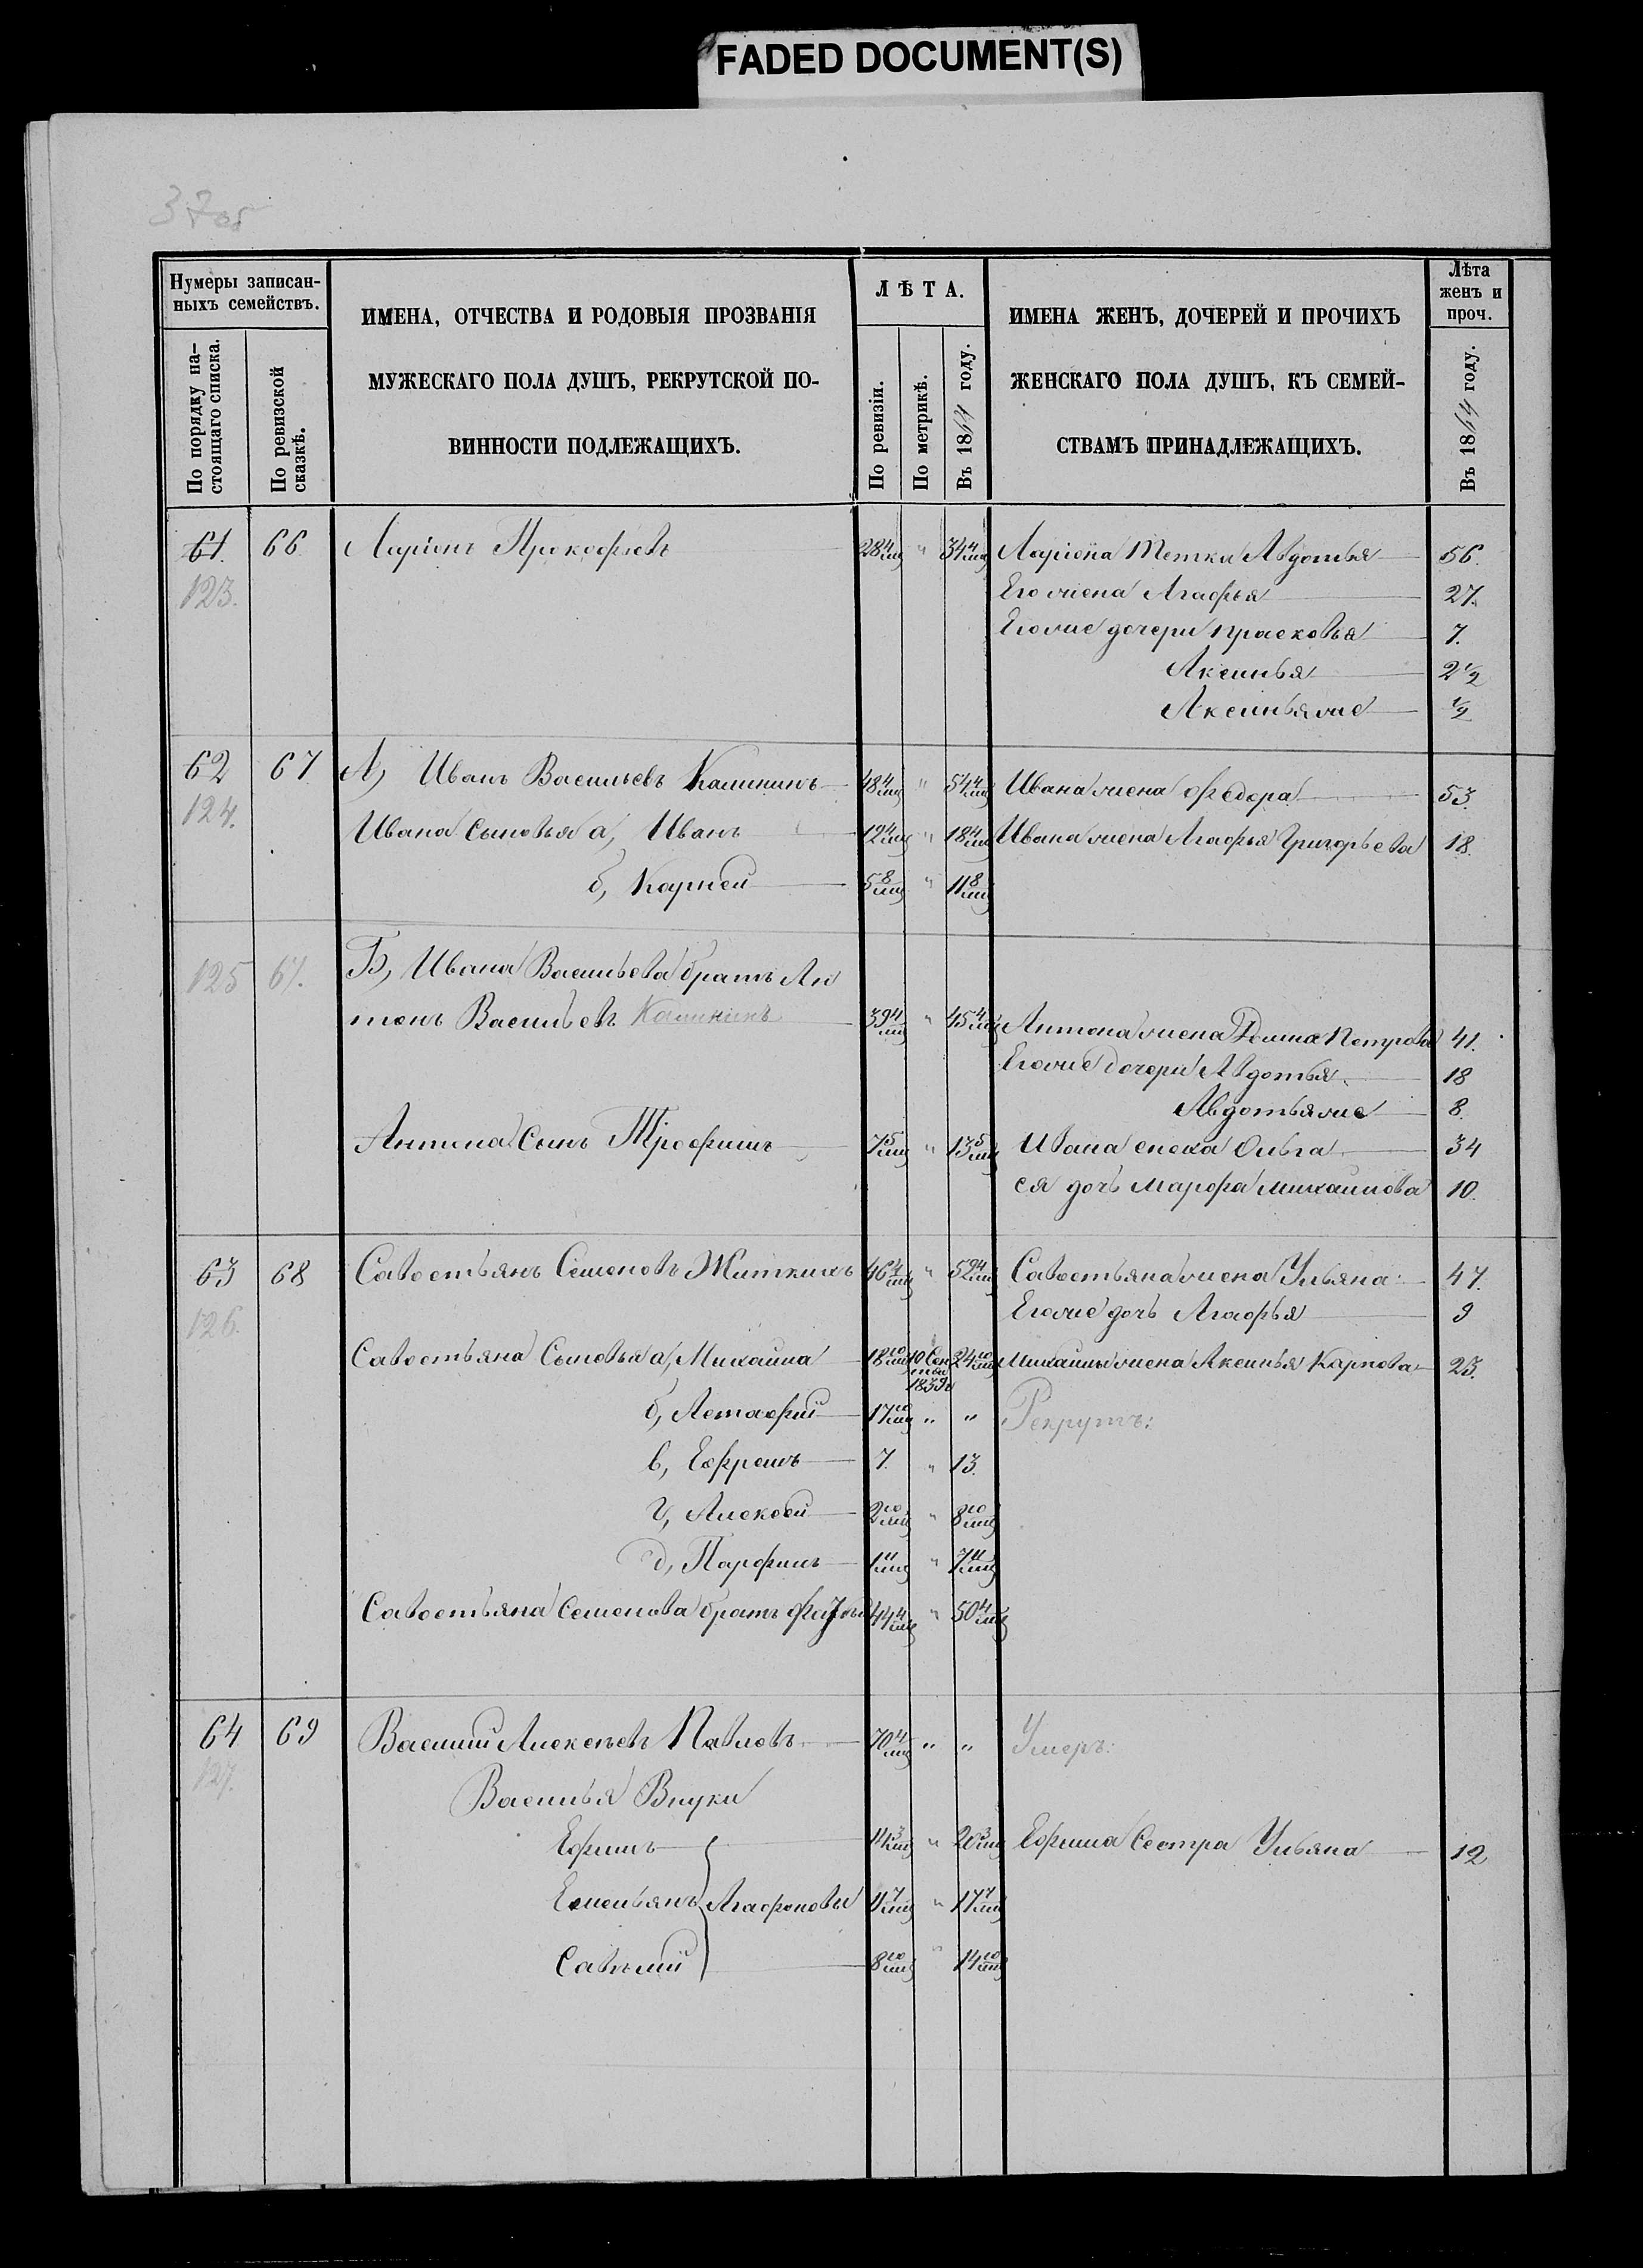 FADED DOCUMENT(S)
37об
Нумеры записан-
ныхъ семействъ.
По порядку на-
стоящаго списка.
По ревизской
сказкѣ.
ИМЕНА, ОТЧЕСТВА И РОДОВЫЯ ПРОЗВАНІЯ
МУЖЕСКАГО ПОЛА ДУШЪ, РЕКРУТСКОЙ ПО-
ВИННОСТИ ПОДЛЕЖАЩИХЪ.
ЛѢТА.
По ревизіи.
По метрикѣ.
Въ 1864 году.
ИМЕНА ЖЕНЪ, ДОЧЕРЕЙ И ПРОЧИХЪ
ЖЕНСКАГО ПОЛА ДУШЪ, КЪ СЕМЕЙ-
СТВАМЪ ПРИНАДЛЕЖАЩИХЪ.
Лѣта
женъ и
проч.
Въ 1864 году.
61. 66 Ларіонъ Прокофьевъ 28 4/мц " 34 4/мц Ларіона Тетка Авдотья 56.
123. Его жена Агафья 27.
Егоже дочери Прасковья 7.
Аксинья 2 1/2
Аксинья же 1/2
62 67 А, Иванъ Васильевъ Калининъ 48 4/мц " 54 4/мц Ивана жена Федора 53.
124. Ивана Сыновья а, Иванъ 12 4/мц " 18 4/мц Ивана жена Агафья Григорьева 18.
б, Карней 5 8/мц " 11 8/мц
125 67. Б, Ивана Васильева братъ Ан
тонъ Васильевъ Калининъ 39 4/мц " 45 4/мц Антона жена Петрова 41.
Егоже дочери Авдотья 18
Авдотья же 8.
Антона Сынъ Трофимъ 7 5/мц " 13 5/мц Ивана сноха Ольга 34
ея дочь Марфа Михайлова 10.
63 68 Савостьянъ Семеновъ Житкихъ 46 4/мц " 52 4/мц Савостьяна жена Ульяна 47.
126. Егоже дочь Агафья 9
Савостьяна Сыновья а, Михаила 18 10/мц 10 Сен
тбр
1839 24 10/мц Михаилы жена Аксинья Карпова 23.
б, Астафий 17 10/мц " " Рекрутъ:
в, Ефремъ 7. " 13.
г, Алексѣй 2 10/мц " 8 10/мц
д, Парфинъ 1 11/мц " 7 11/мц
Савостьяна Семенова братъ 44 4/мц " 50 4/мц
64 69 Василий Алексѣевъ Павловъ 70 4/мц " " Умеръ:
127. Василья Внуки
Ефимъ 14 3/мц " 20 3/мц Ефима Сестра Ульяна 12
Емельянъ Агафоновы 11 7/мц " 17 7/мц
Савелий 8 10/мц " 14 10/мц